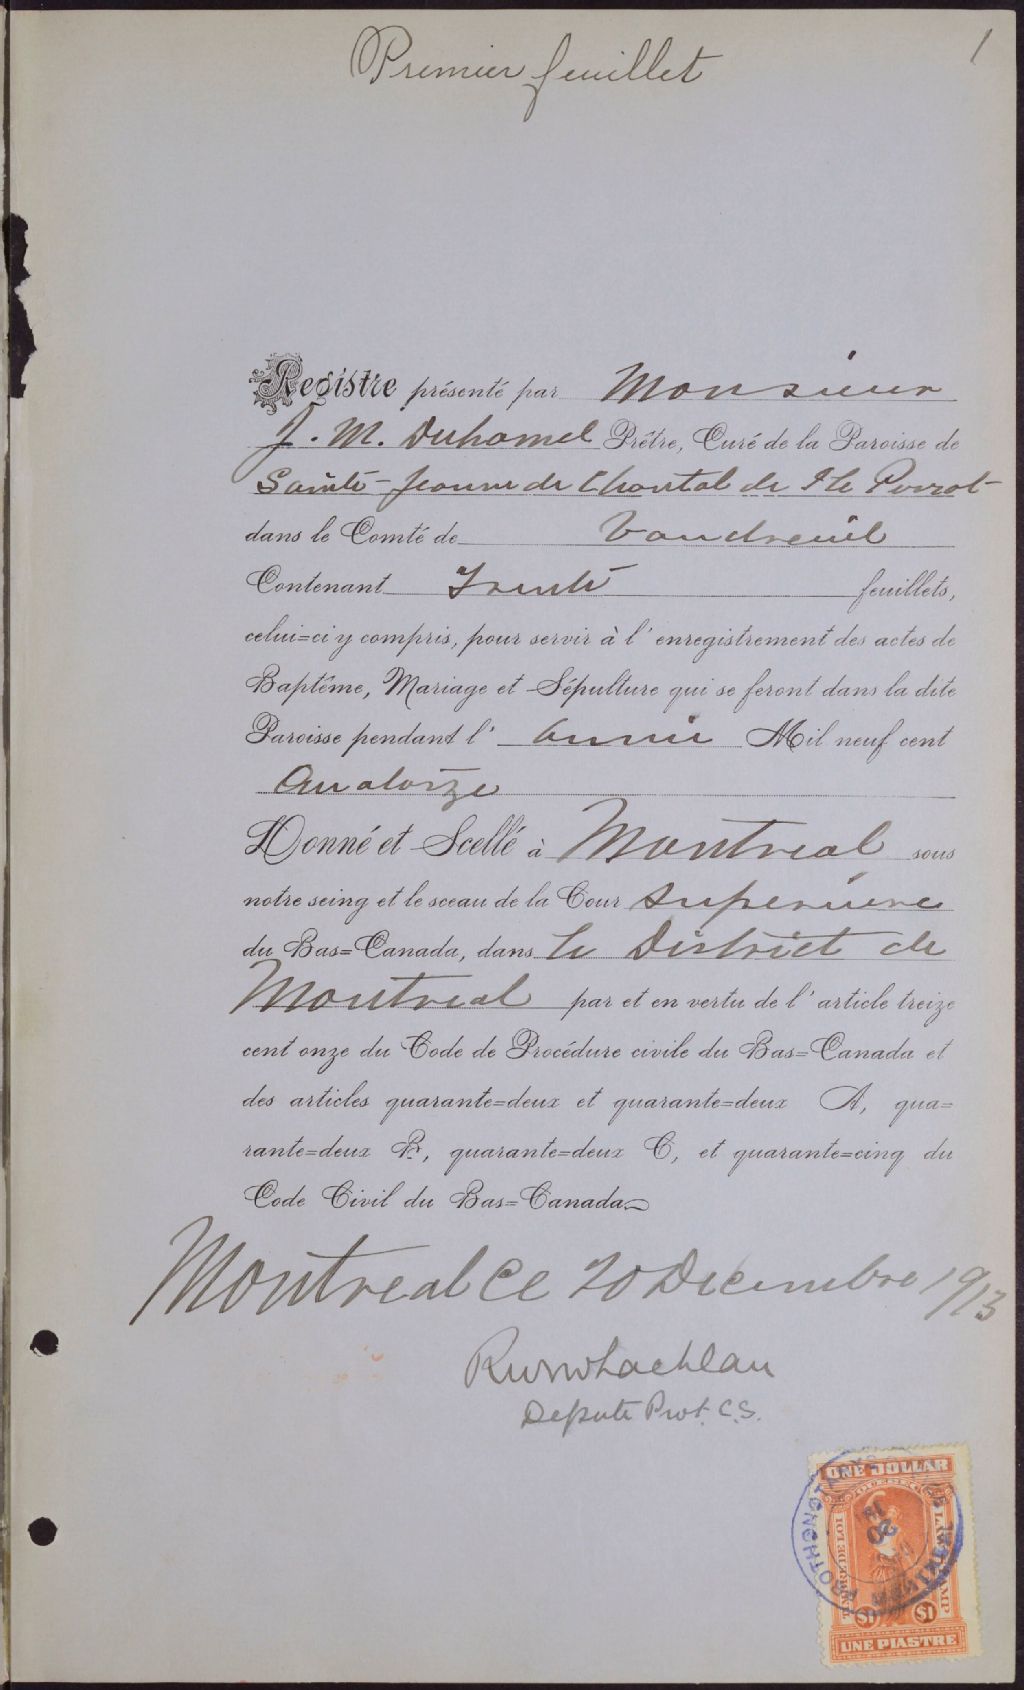 1
Premier feuillet
Registre présenté par Monsieur
J. M. Duhamel Prêtre, Curé de la Paroisse de
Sainte-Jeanne de Chantal de Ile Perrot
dans le Comté de Vaudreuil
Contenant Trente feuillets,
celui=ci y compris, pour servir à l'enregistrement des actes de
Baptême, Mariage et Sépulture qui se feront dans la dite
Paroisse pendant l'année Mil neuf cent
Quatorze
Donné et Scellé à Montreal sous
notre seing et le sceau de la Cour Superieure
du Bas=Canada, dans le District de
Montreal par et en vertu de l'article treize
cent onze du Code de Procédure civile du Bas=Canada et
des articles quarante=deux et quarante=deux A, qua=
rante=deux B, quarante=deux C, et quarante=cinq du
Code Civil du Bas=Canada
Montreal ce 20 Decembre 1913
Depute Prot. C.S.
ONE DOLLAR
QUEBEC
TIMBRE DE LOI
LAW STAMP
$1 $1
UNE PIASTRE
PROTHONOTARY'S
20